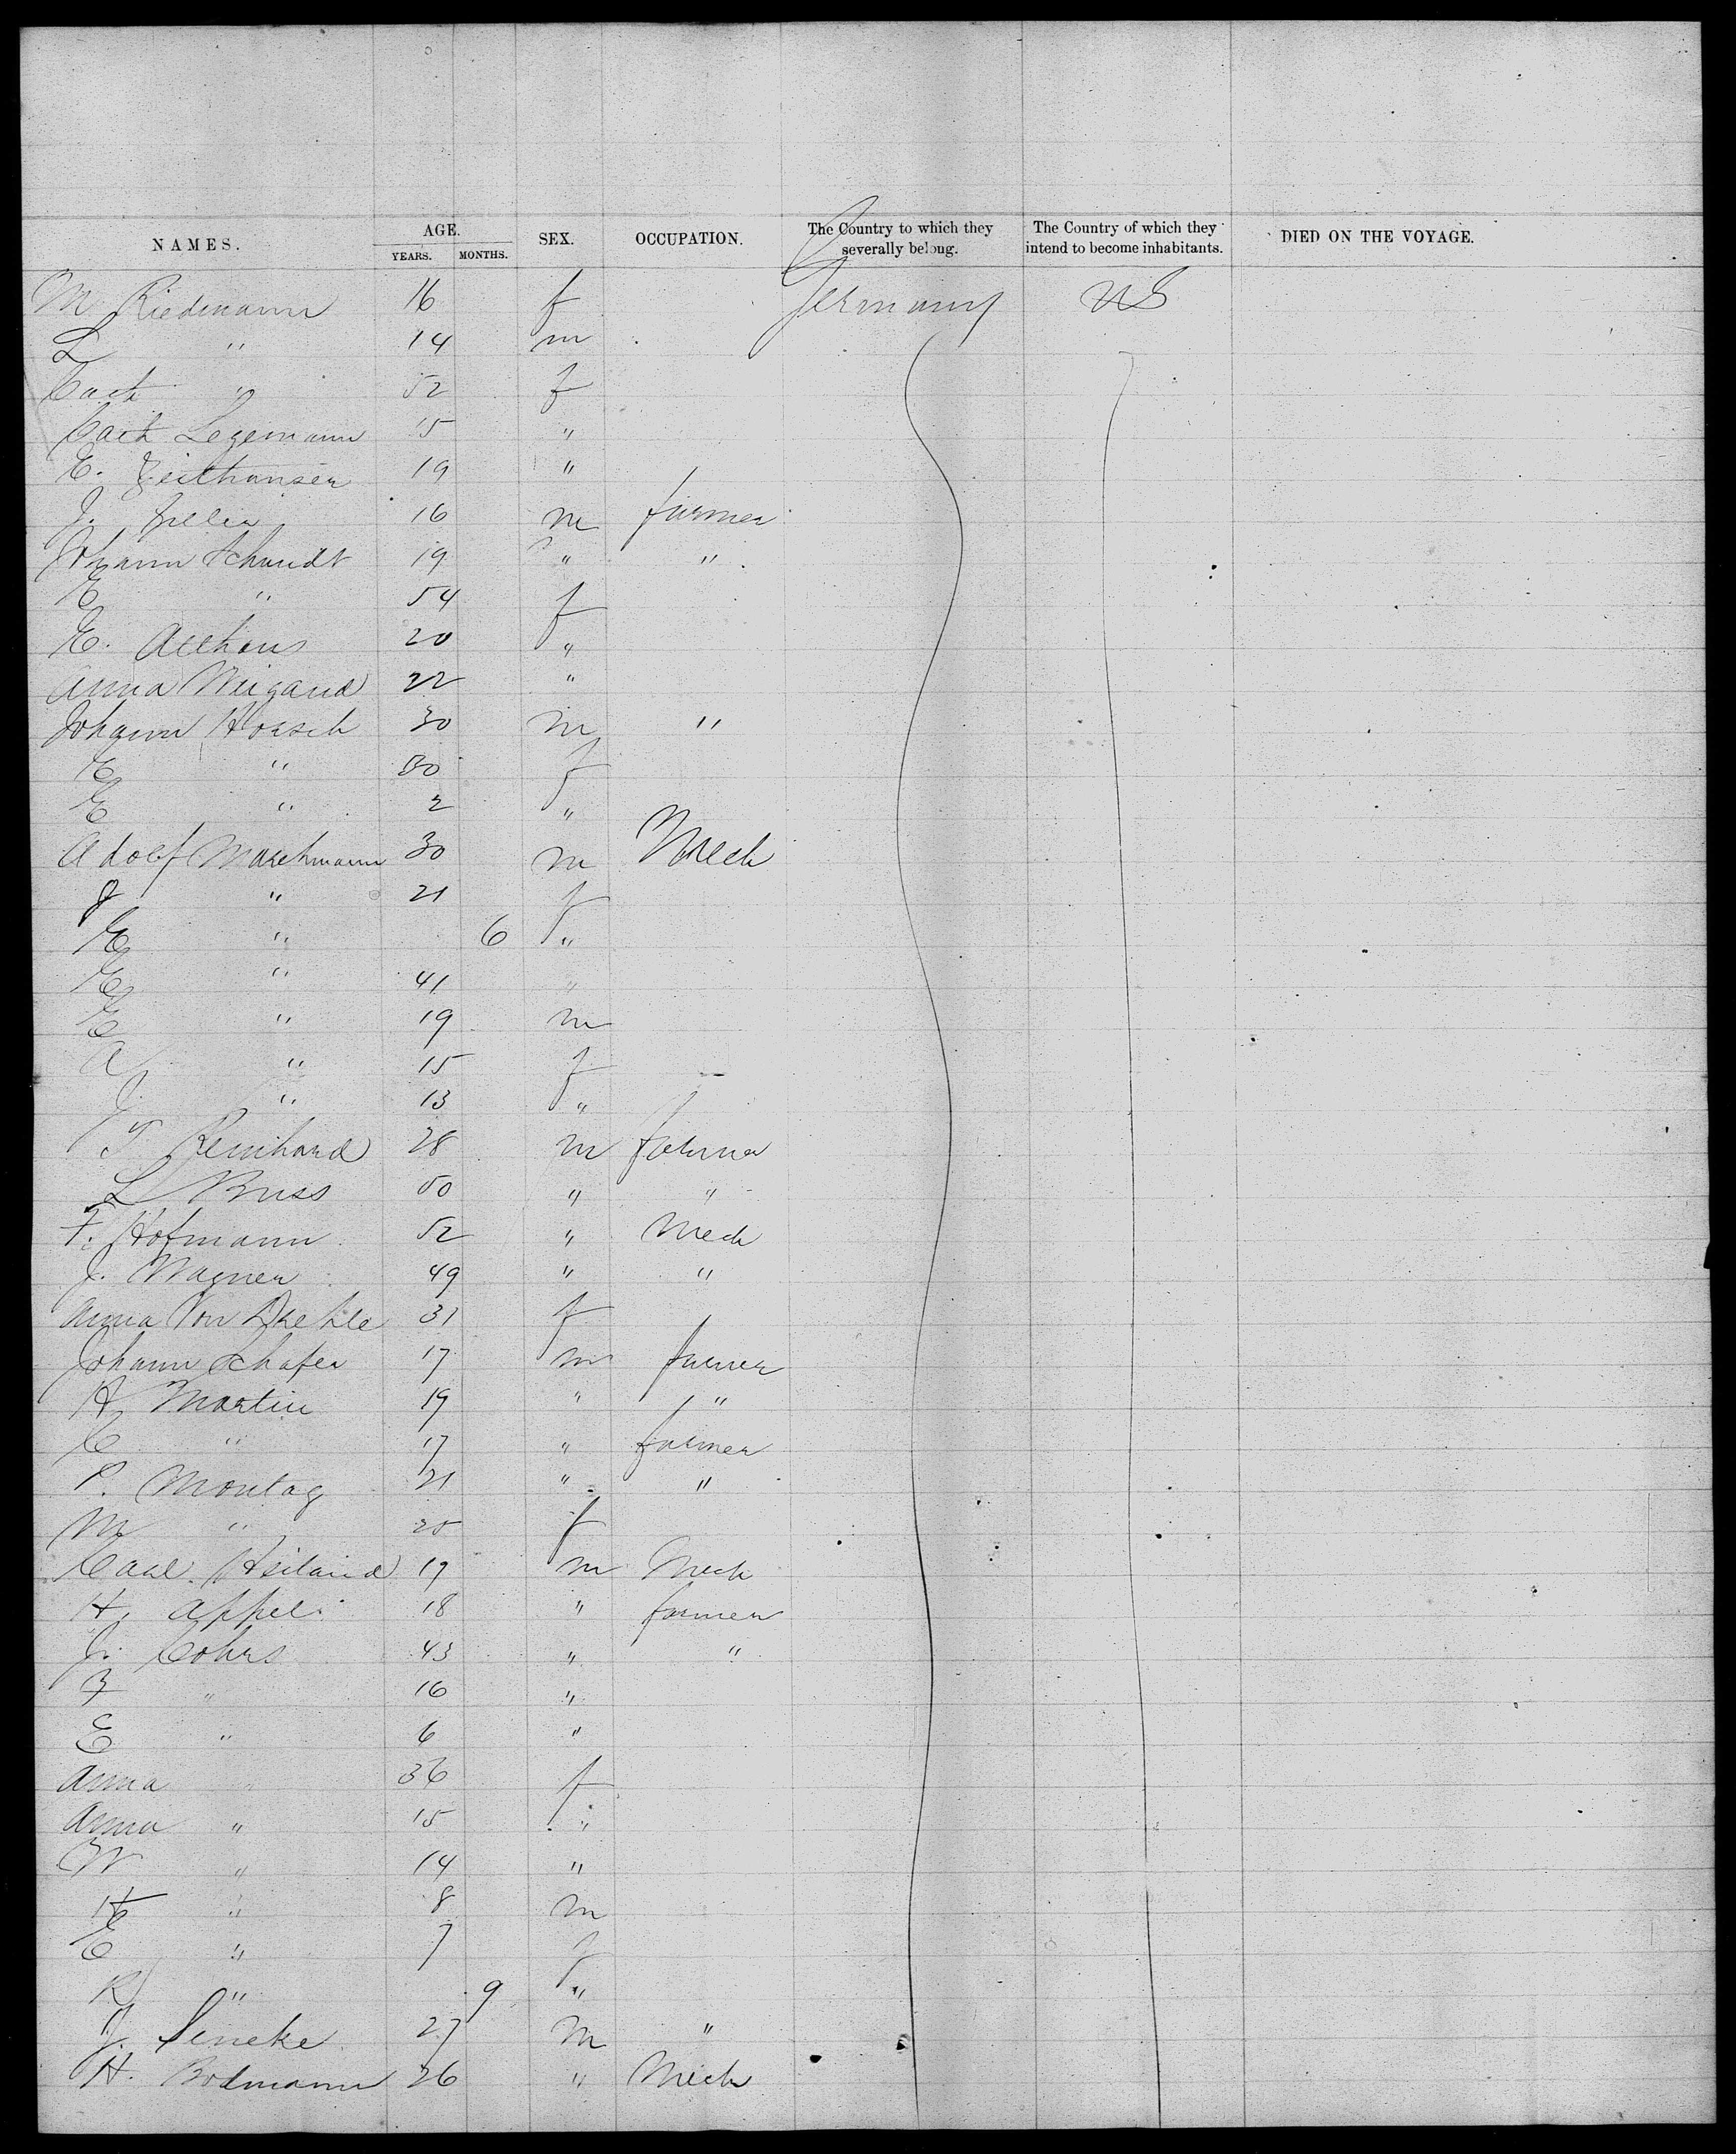 NAMES. AGE. YEARS. MONTHS. SEX. OCCUPATION. The Country to which they severally belong. The Country of which they intend to become inhabitants. DIED ON THE VOYAGE.
M Riedmann 16 f Germany US
L " 14 m
Cath " 52 f
Cath Legemann 15 "
E. 19 "
J. 16 m farmer
Johann Schmidt 19 " "
E " 54 f
E. Althaus 20 "
Anna Weigand 22 "
Johann Hoesch 30 m "
E " 30 f
E " 2 "
Adolf Marchmann 30 m Mech
J " 21 f
E " 6 "
E " 41 "
E " 19 m
A " 15 f
J. " 13 "
T Reinhard 28 m farmer
L Buss 50 " "
F. Hofmann 52 " Mech
J. Wagner 49 " "
Anna Von 31 f
Johann Schafer 17 m farmer
H Martin 19 " "
C " 17 " farmer
P. Montag 21 " "
M " 25 f
Carl Heiland 19 m Mech
H. Appel 18 " farmer
J. Cohrs 43 " "
F " 16 "
E " 6 "
Anna " 36 f
Anna " 15 "
W " 14 "
H " 8 m
E " 7 f
R " 9 "
J. 27 m "
H. Bodmann 26 " Mech